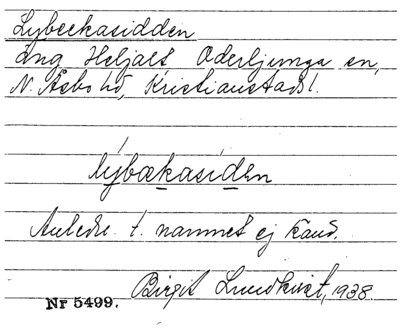 Lybeckasidden
äng Heljalt Oderljunga sn,
N. Åsbo hd, Kristianstads l.
lýbækasíden
Anledn. t. namnet ej känd.
Birgit Lundkvist, 1938.
Nr 5499.